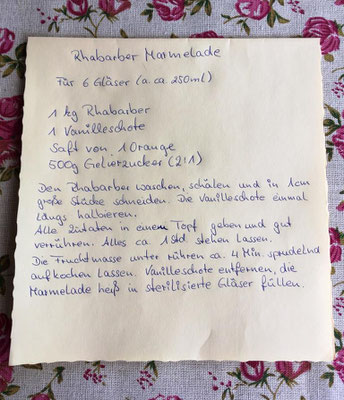 Rhabarber Marmelade
Für 6 Gläser (a. ca. 250ml)
1 kg Rhabarber
1 Vanilleschote
Saft von 1 Orange
500g Gelierzucker (2:1)
Den Rhabarber waschen, schälen und in 1cm
große Stücke schneiden. Die Vanilleschote einmal
längs halbieren.
Alle Zutaten in einem Topf geben und gut
verrühren. Alles ca. 1 Std. stehen lassen.
Die Fruchtmasse unter rühren ca. 4 Min. sprudelnd
aufkochen lassen. Vanilleschote entfernen, die
Marmelade heiß in sterilisierte Gläser füllen.